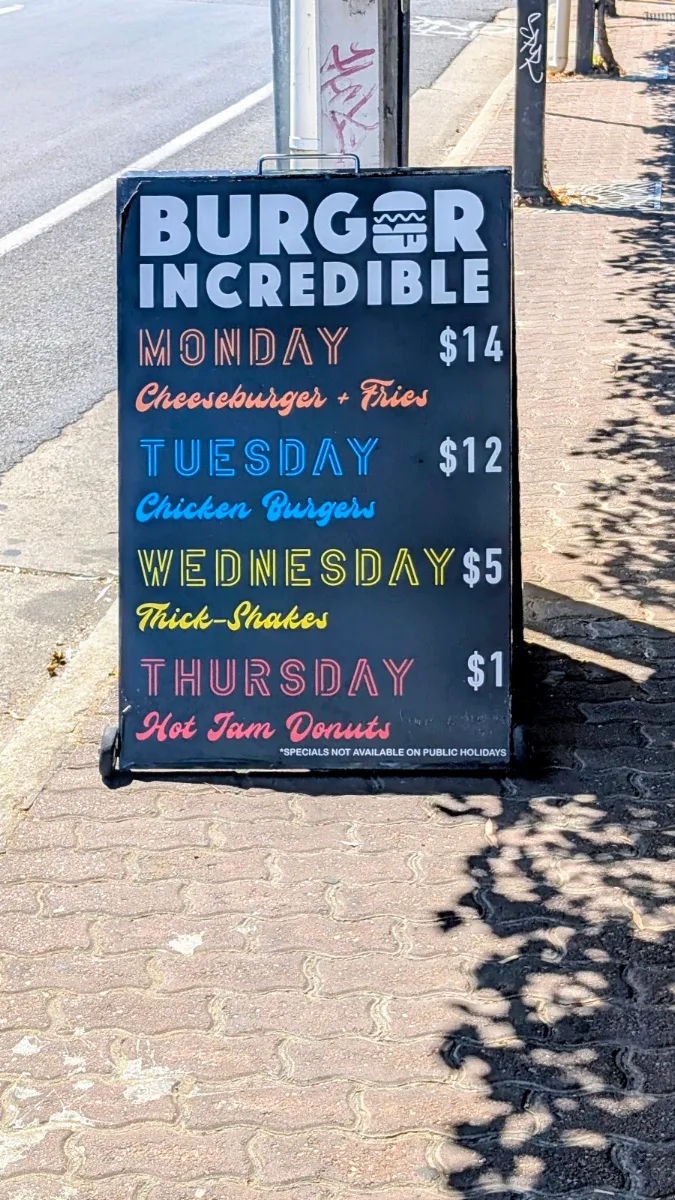 BURGER
INCREDIBLE
MONDAY $14
Cheeseburger + Fries
TUESDAY $12
Chicken Burgers
WEDNESDAY $5
Thick-Shakes
THURSDAY $1
Hot Jam Donuts
*SPECIALS NOT AVAILABLE ON PUBLIC HOLIDAYS